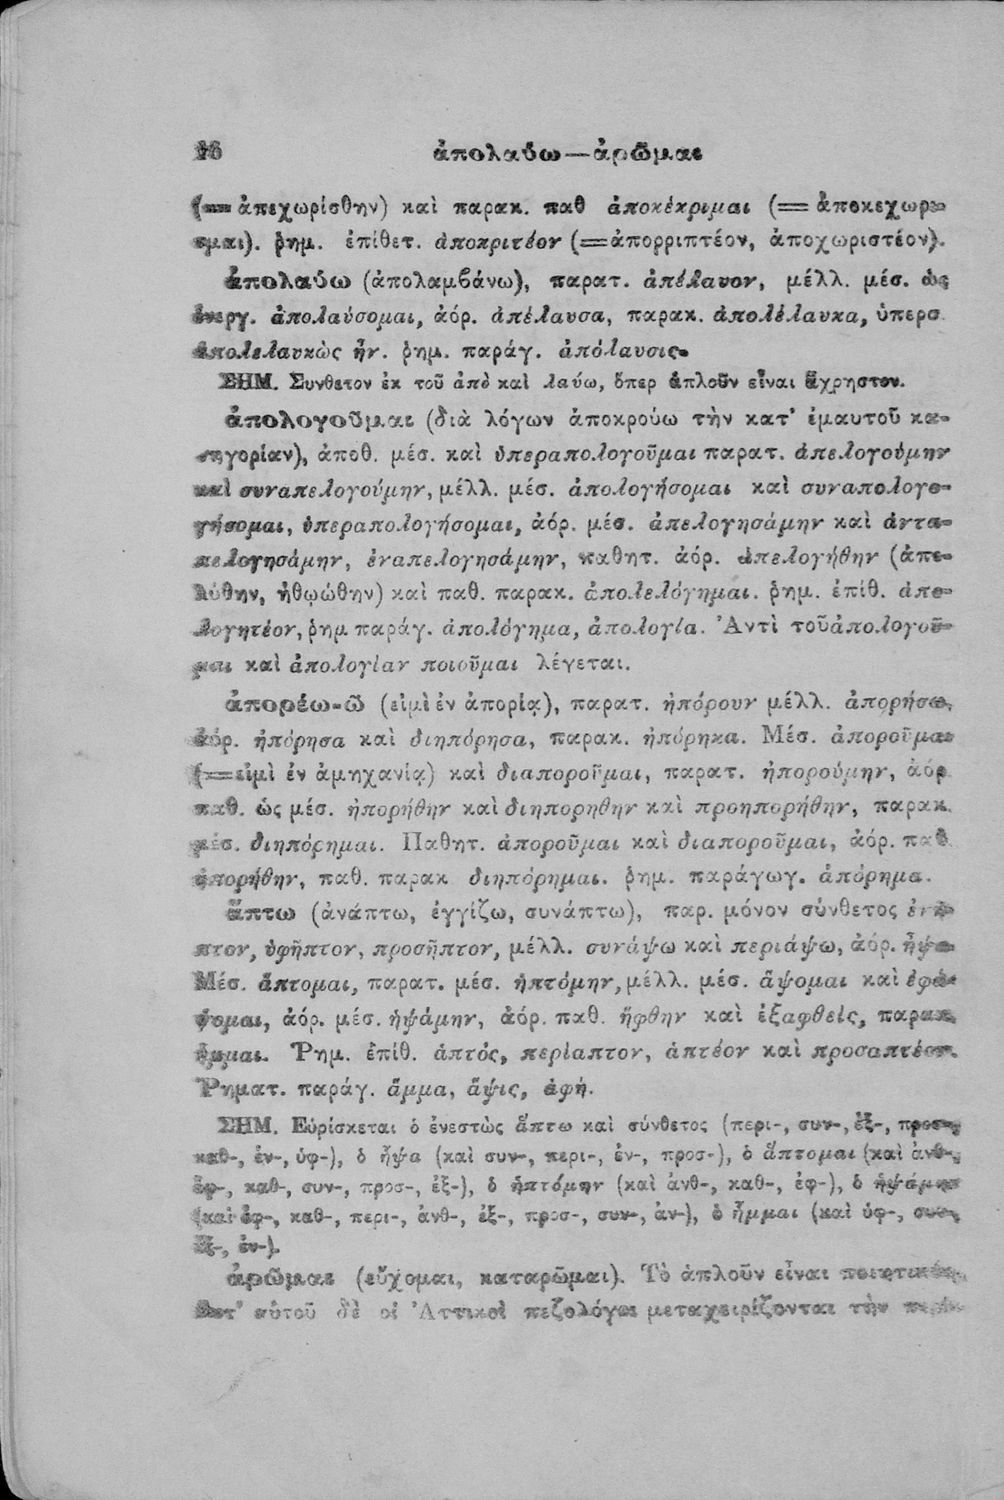 16 ἀπολαύω—ἀρῶμαι
(= ἀπεχωρίσθην) καὶ παρακ. παθ ἀποκέκριμαι (= ἀποκεχώρι-
σμαι). ῥημ. ἐπίθετ. ἀποκριτέον (=ἀπορριπτέον, ἀποχωριστέον).
ἀπολαύω (ἀπολαμβάνω), παρατ. ἀπέλαυον, μέλλ. μέσ. ὡς
ἐνεργ. ἀπολαύσομαι, ἀόρ. ἀπέλαυσα, παρακ. ἀπολέλαυκα, ὑπερσ
ἀπολελαυκὼς ἦν. ῥημ. παράγ. ἀπόλαυσις.
ΣΗΜ. Συνθετον ἐκ τοῦ ἀπὸ καὶ λαύω, ὅπερ ἁπλοῦν εἶναι ἄχρηστον.
ἀπολογοῦμαι (διὰ λόγων ἀποκρούω τὴν κατ' ἐμαυτοῦ κα-
τηγορίαν), ἀποθ. μέσ. καὶ ὑπεραπολογοῦμαι παρατ. ἀπελογούμην
καὶ συναπελογούμην, μέλλ. μέσ. ἀπολογήσομαι καὶ συναπολογο-
γήσομαι, ὑπεραπολογήσομαι, ἀόρ. μέσ. ἀπελογησάμην καὶ ἀντα-
πελογησάμην, ἐναπελογησάμην, παθητ. ἀόρ. ἀπελογήθην (ἀπε-
λύθην, ἠθῳώθην) καὶ παθ. παρακ. ἀπολελόγημαι. ῥημ. ἐπίθ. ἀπο-
λογητέον, ῥημ παράγ. ἀπολόγημα, ἀπολογία. Ἀντὶ τοῦ ἀπολογοῦ-
μαι καὶ ἀπολογίαν ποιοῦμαι λέγεται.
ἀπορέω-ῶ (εἰμὶ ἐν ἀπορίᾳ), παρατ. ἠπόρουν μέλλ. ἀπορήσω,
ἀόρ. ἠπόρησα καὶ διηπόρησα, παρακ. ἠπόρηκα. Μέσ. ἀποροῦμαι
(=εἰμὶ ἐν ἀμηχανίᾳ) καὶ διαποροῦμαι, παρατ. ἠπορούμην, ἀόρ
παθ. ὡς μέσ. ἠπορήθην καὶ διηπορηθην καὶ προηπορήθην, παρακ.
μέσ. διηπόρημαι. Παθητ. ἀποροῦμαι καὶ διαποροῦμαι, ἀόρ. παθ
ἠπορήθην, παθ. παρακ διηπόρημαι. ῥημ. παράγωγ. ἀπόρημα.
ἅπτω (ἀνάπτω, ἐγγίζω, συνάπτω), παρ. μόνον σύνθετος
πτον, ὑφῆπτον, προσῆπτον, μέλλ. συνάψω καὶ περιάψω, ἀόρ. ἧψα
Μέσ. ἅπτομαι, παρατ. μέσ. ἡπτόμην, μέλλ. μέσ. ἅψομαι καὶ ἐφά-
ψομαι, ἀόρ. μέσ. ἡψάμην, ἀόρ. παθ. ἥφθην καὶ ἐξαφθείς, παρακ.
ἧμμαι. Ῥημ. ἐπίθ. ἁπτός, περίαπτον, ἁπτέον καὶ προσαπτέον.
Ῥηματ. παράγ. ἅμμα, ἅψις, ἁφή.
ΣΗΜ. Εὑρίσκεται ὁ ἐνεστὼς ἅπτω καὶ σύνθετος (περι-, συν-, ἐξ-, προσ-,
καθ-, ἐν-, ὑφ-), ὁ ἧψα (καὶ συν-, περι-, ἐν-, προσ-), ὁ ἅπτομαι (καὶ ἀνθ-,
ἐφ-, καθ-, συν-, προσ-, ἐξ-), ὁ ἡπτόμην (καὶ ἀνθ-, καθ-, ἐφ-), ὁ ἡψάμην
(καὶ ἐφ-, καθ-, περι-, ἀνθ-, ἐξ-, προσ-, συν-, ἀν-), ὁ ἧμμαι (καὶ ὑφ-, συν-,
ἐξ-, ἐν-).
ἀρῶμαι (εὔχομαι, καταρῶμαι). Τὸ ἁπλοῦν εἶναι ποιητικόν,
ἀντ' αὐτοῦ δὲ οἱ Ἀττικοὶ πεζολόγοι μεταχειρίζονται τὴν